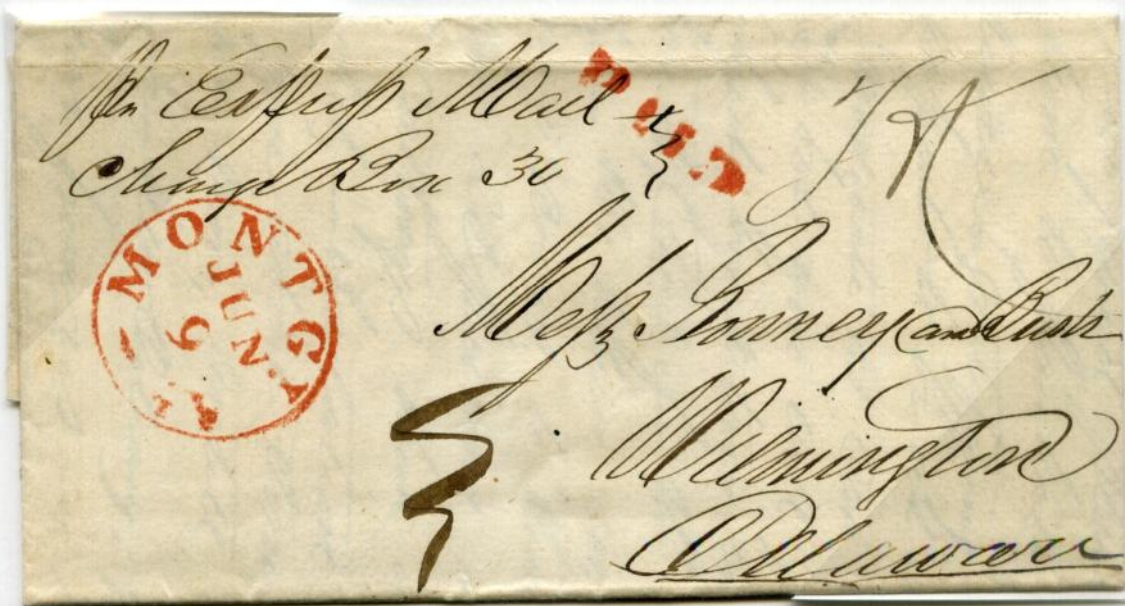 Pr Express Mail
Charge Box 30
PAID
75
MONTGY. AL
JUN
6
Messrs Bonney and Bush
Wilmington
Delaware